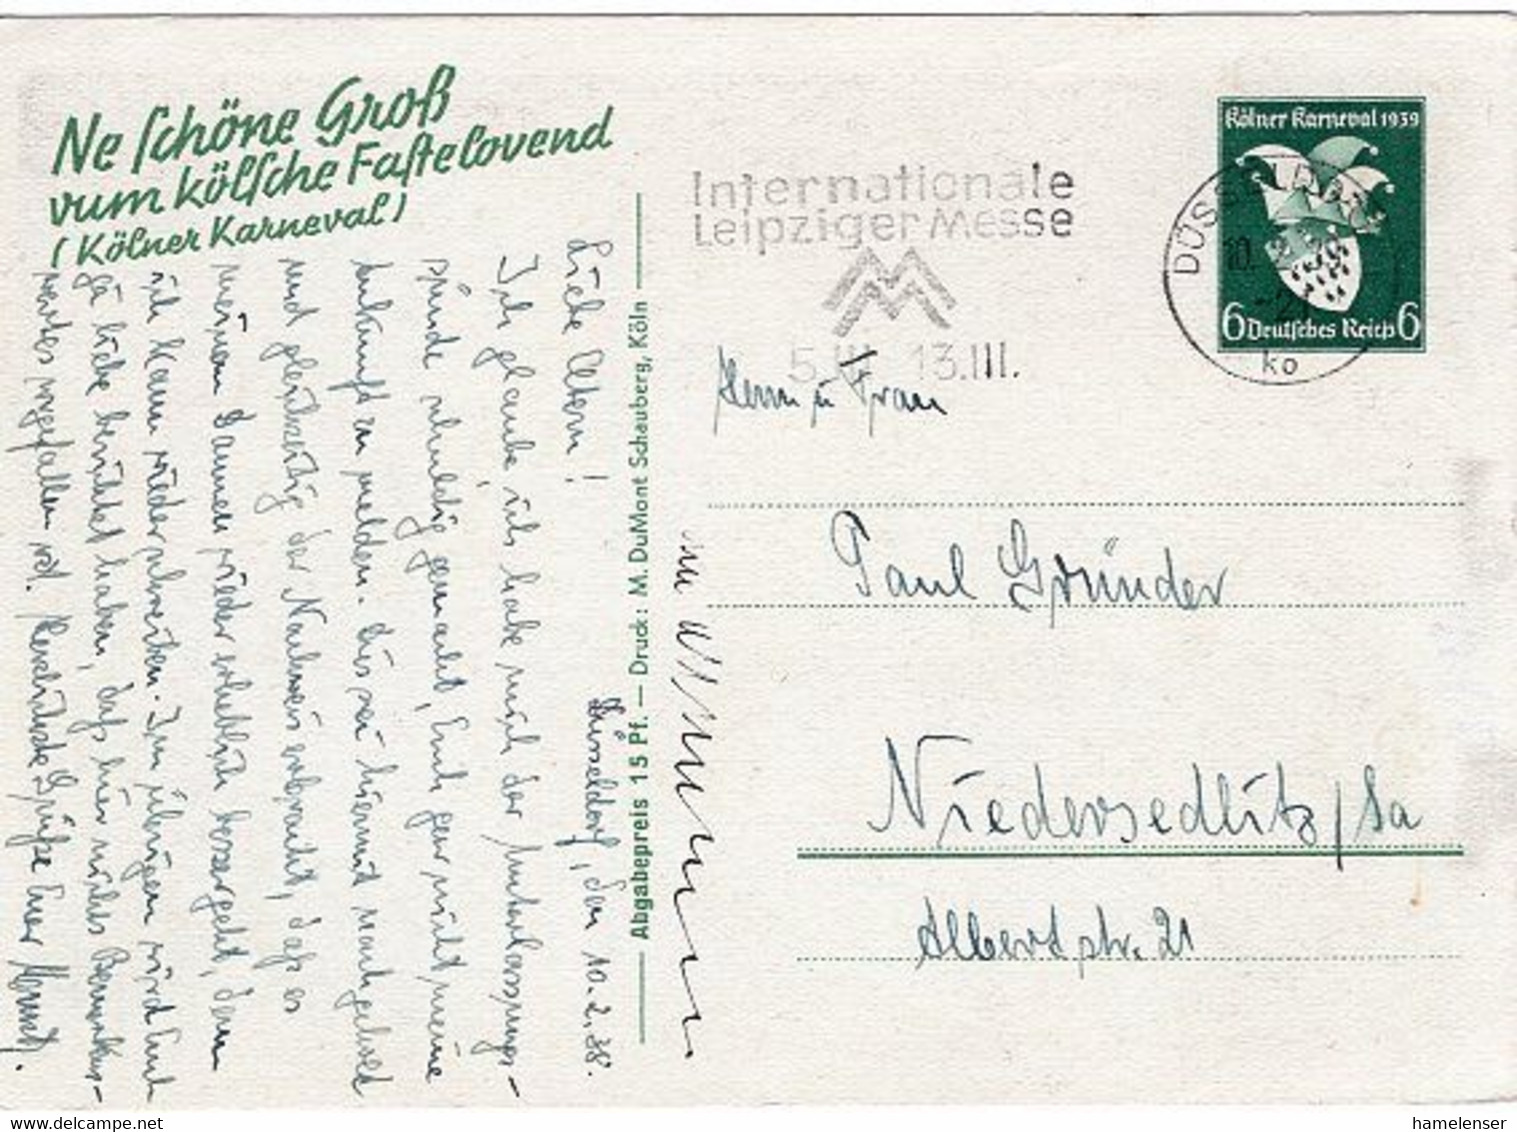 Ne schöne Groß
vum kölsche Fastelovend
(Kölner Karneval)
Internationale
Leipziger Messe
5.III. 13.III.
DÜSSELDORF
10. 2.
ko
Kölner Karneval 1939
6 Deutsches Reich 6
Herrn u Frau
Paul Gründer
Niedersedlitz / Sa
Albertstr. 21
Abgabepreis 15 Pf. — Druck: M. DuMont Schauberg, Köln
Düsseldorf, den 10.2.38.
Liebe Eltern!
Ich glaube, ich habe mich der Unterlassungs-
sünde schuldig gemacht, Euch gar nicht meine
Ankunft zu melden. Dies sei hiermit nachgeholt
und gleichzeitig der Nachweis erbracht, daß es
meinem Daumen wieder erheblich besser geht, denn
ich kann wieder schreiben. Im übrigen wird Euch
ja Liebe berichtet haben, daß hier nichts Bemerkens-
wertes vorgefallen ist. Herzlichste Grüße Euer Horst.